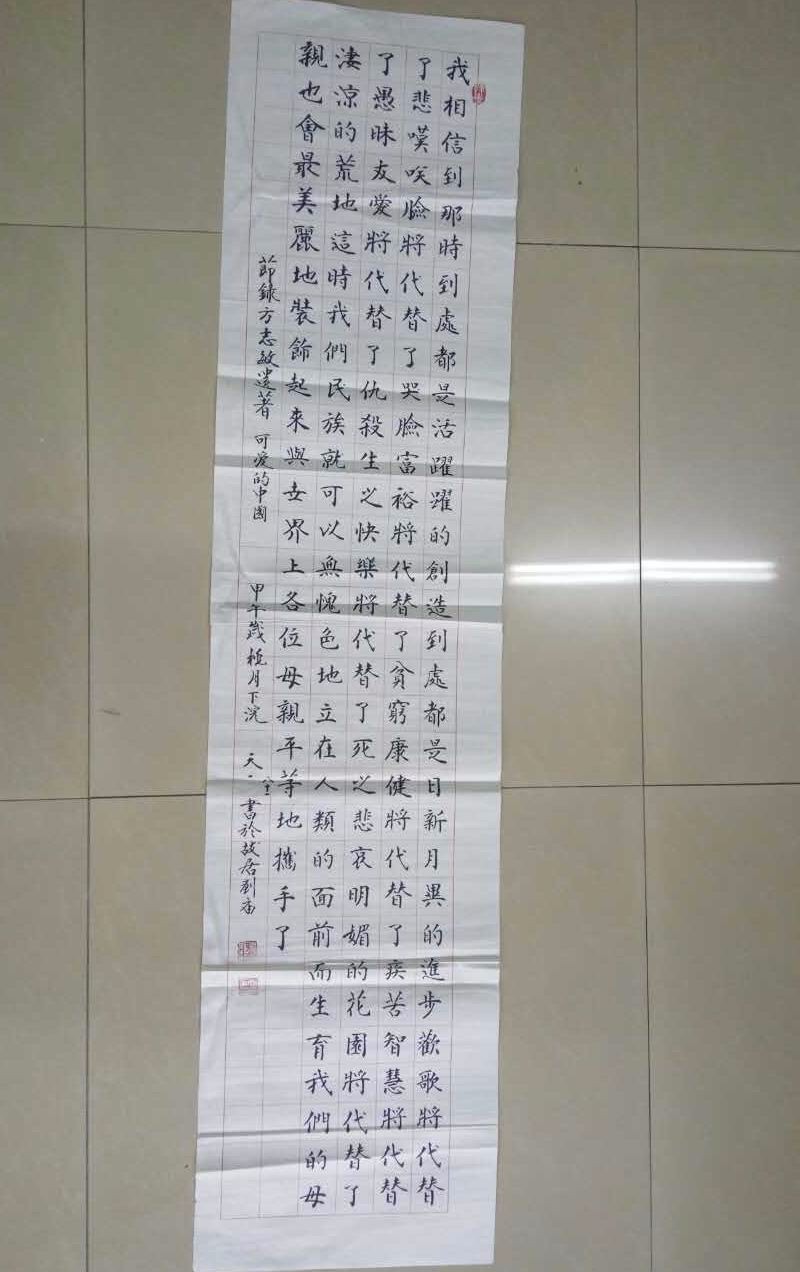 我相信到那時到處都是活躍躍的創造到處都是日新月異的進步歡歌將代替
了悲嘆笑臉將代替了哭臉富裕將代替了貧窮康健將代替了疾苦智慧將代替
了愚昧友愛將代替了仇殺生之快樂將代替了死之悲哀明媚的花園將代替了
淒涼的荒地這時我們民族就可以無愧色地立在人類的面前而生育我們的母
親也會最美麗地裝飾起來與世界上各位母親平等地攜手了
節錄方志敏遺著 可爱的中國 甲午歲 月下浣 天 書於故居劉庙